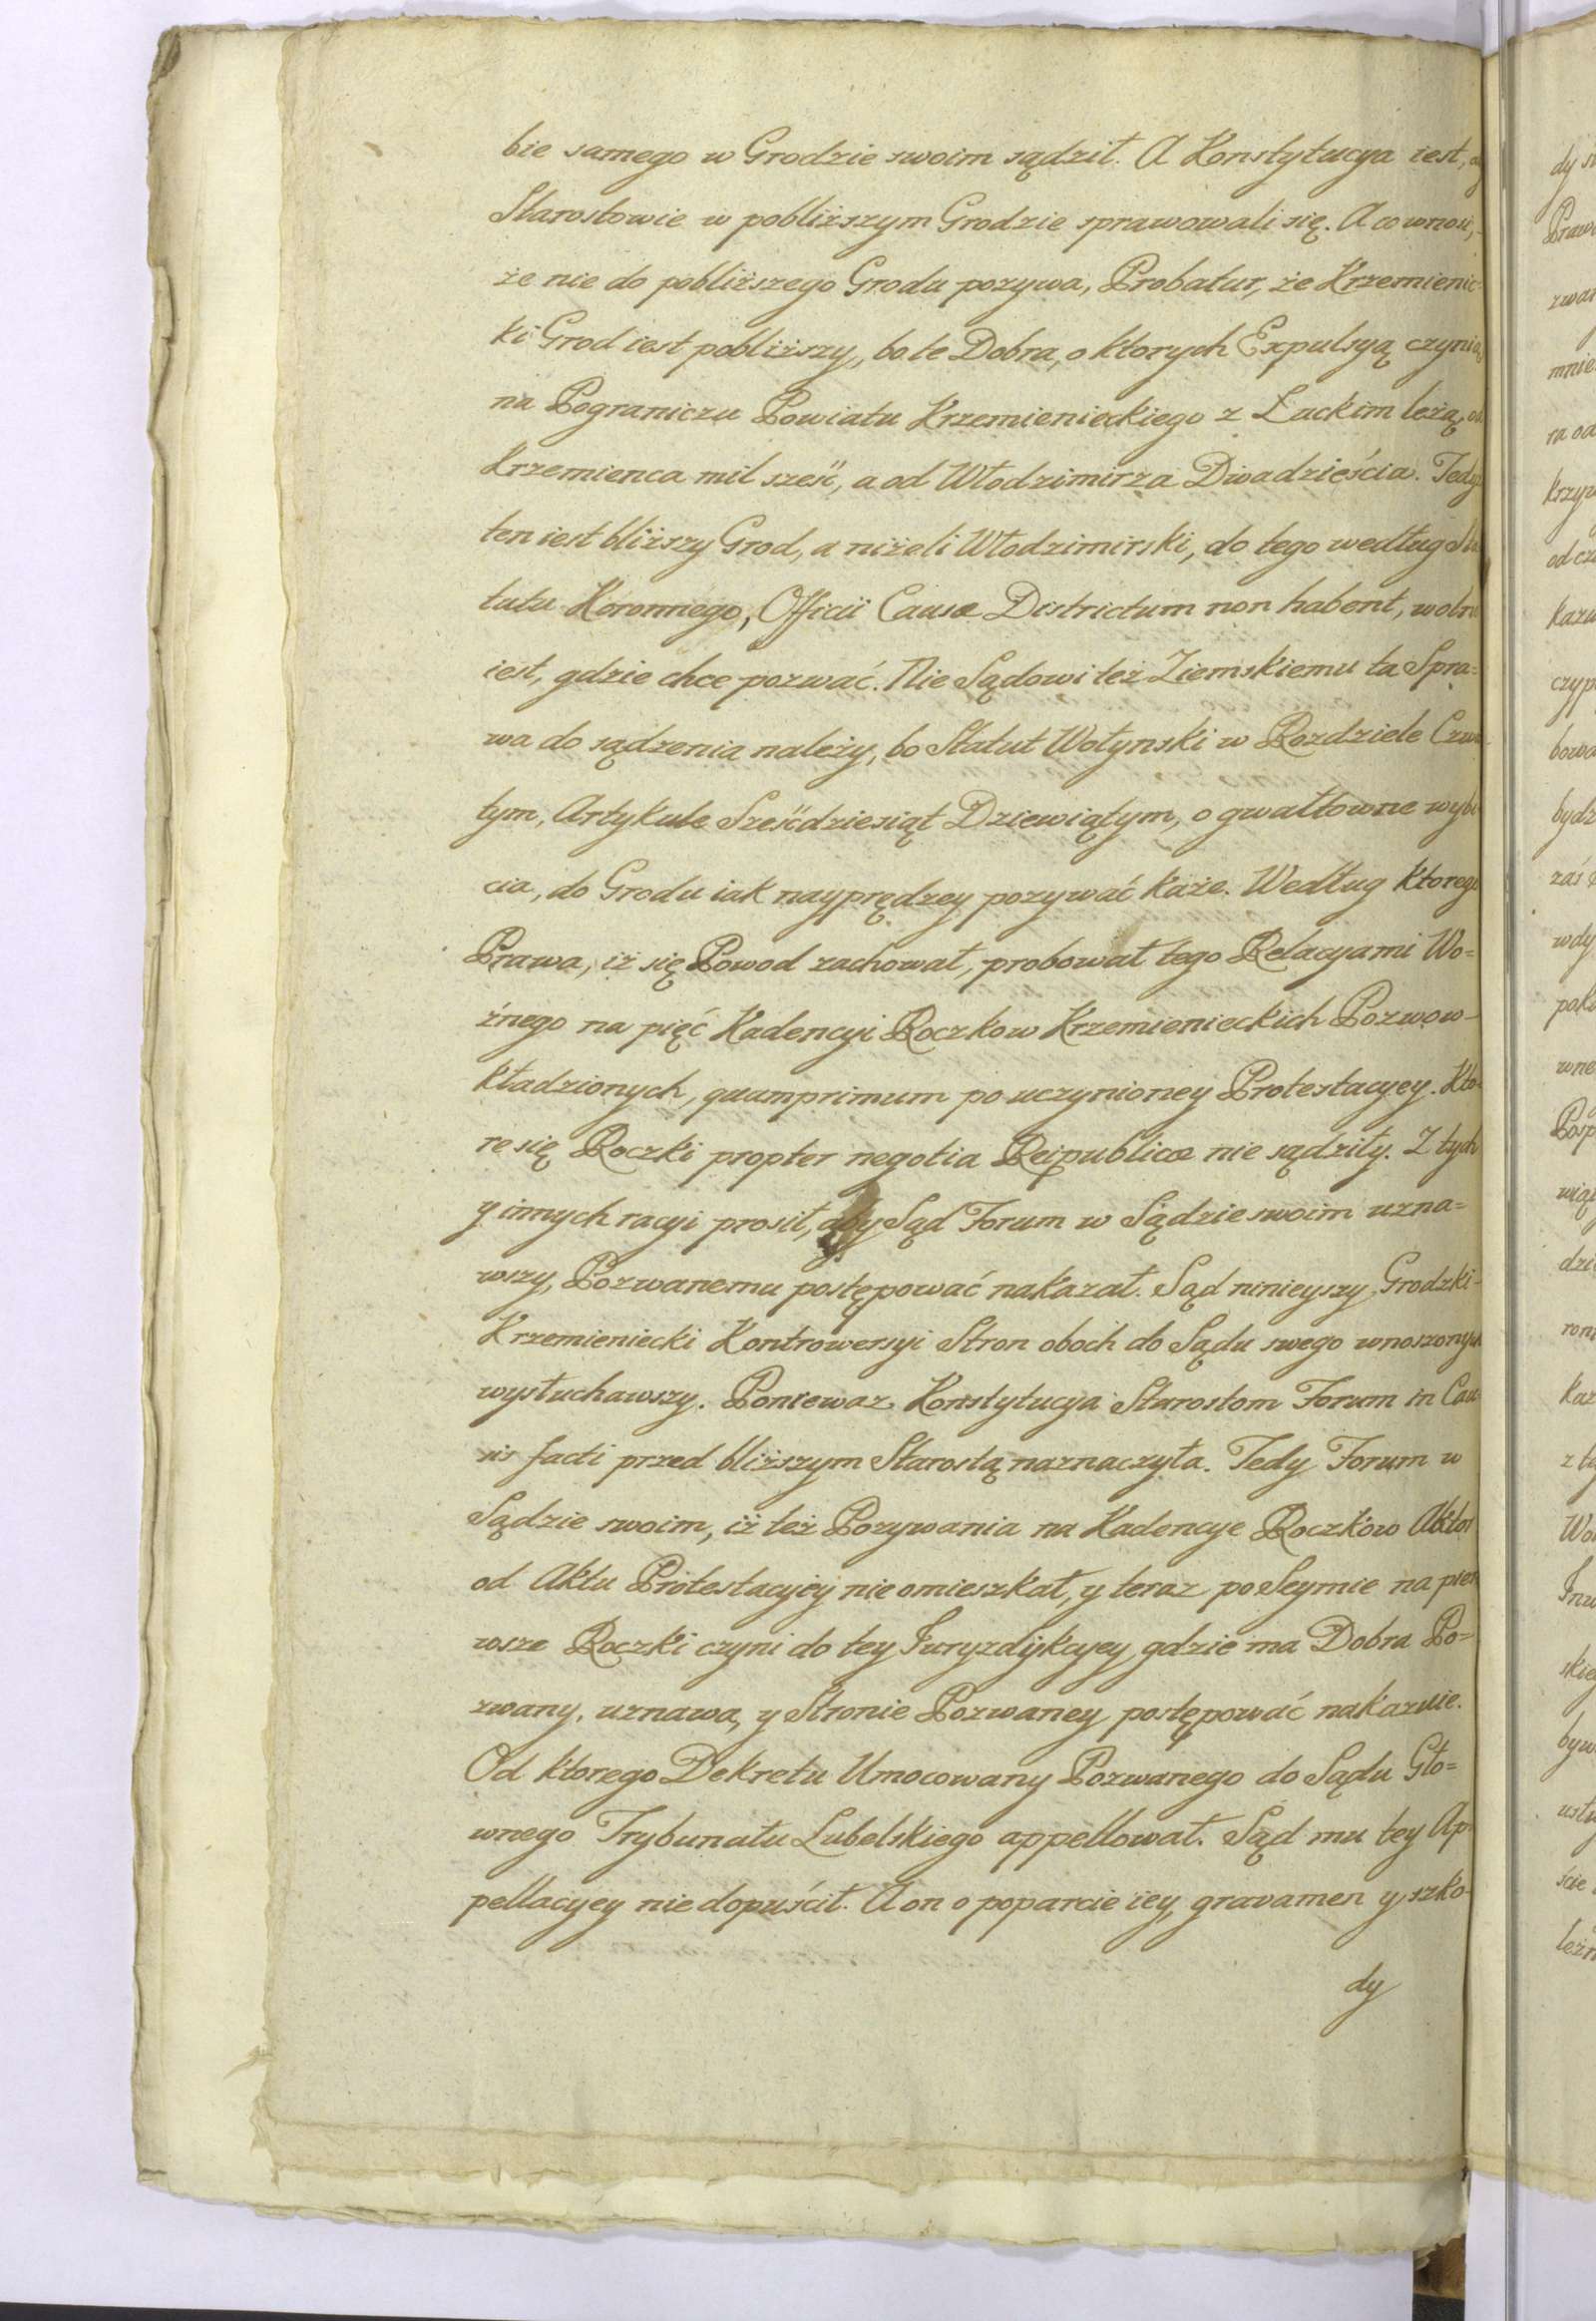 bie samego w Grodzie swoim sądził. A Konstytucya iest,
Starostowie w pobliższym Grodzie sprawowali się. A co wnosi,
że nie do pobliższego Grodu pozywa, Probatur, że Krzemienic-
ki Grod iest pobliższy, bo te Dobra, o ktorych Expulsyą czynią
na Pograniczu Powiatu Krzemienieckiego z Łuckim leżą, od
Krzemienca mil sześć, a od Włodzimirza Dwadzieścia. Tedy
ten iest bliższy Grod, a niżeli Włodzimirski, do tego według Sta
tutu Koronnego, Officii Causæ Districtum non habent, wolno
iest, gdzie chce pozwać. Nie Sądowi też Ziemskiemu ta Spra=
wa do sądzenia należy, bo Statut Wołynski w Rozdziele Czwar
tym, Artykule Sześćdziesiąt Dziewiątym, o gwałtowne wybi
cia, do Grodu iak nayprędzey pozywać każe. Według ktorego
Prawa, iż się Powod zachował, probował tego Relacyami Wo=
źnego na pięć Kadencyi Roczkow Krzemienieckich Pozwow-
kładzionych, quamprimum po uczynioney Protestacyey. Kto-
re się Roczki propter negotia Reipublicæ nie sądziły. Z tych
y innych racyi prosił, aby Sąd Forum w Sądzie swoim uzna=
wszy, Pozwanemu postępować nakazał. Sąd ninieyszy Grodzki-
Krzemieniecki Kontrowersyi Stron oboch do Sądu swego wnoszonych
wysłuchawszy. Poniewaz Konstytucya Starostom Forum in Cau
sis facti przed bliższym Starostą naznaczyła. Tedy Forum w
Sądzie swoim, iż też Pozywania na Kadencye Roczkow Aktor
od Aktu Protestacyey nie omieszkał, y teraz po Seymie na pier
wsze Roczki czyni do tey Juryzdykcyey, gdzie ma Dobra Po=
zwany, uznawa, y Stronie Pozwaney postępować nakazuie.
Od ktorego Dekretu Umocowany Pozwanego do Sądu Gło=
wnego Trybunału Lubelskiego appellował. Sąd mu tey Ap
pellacyey nie dopuścił. A on o poparcie iey, gravamen y szko-
dy